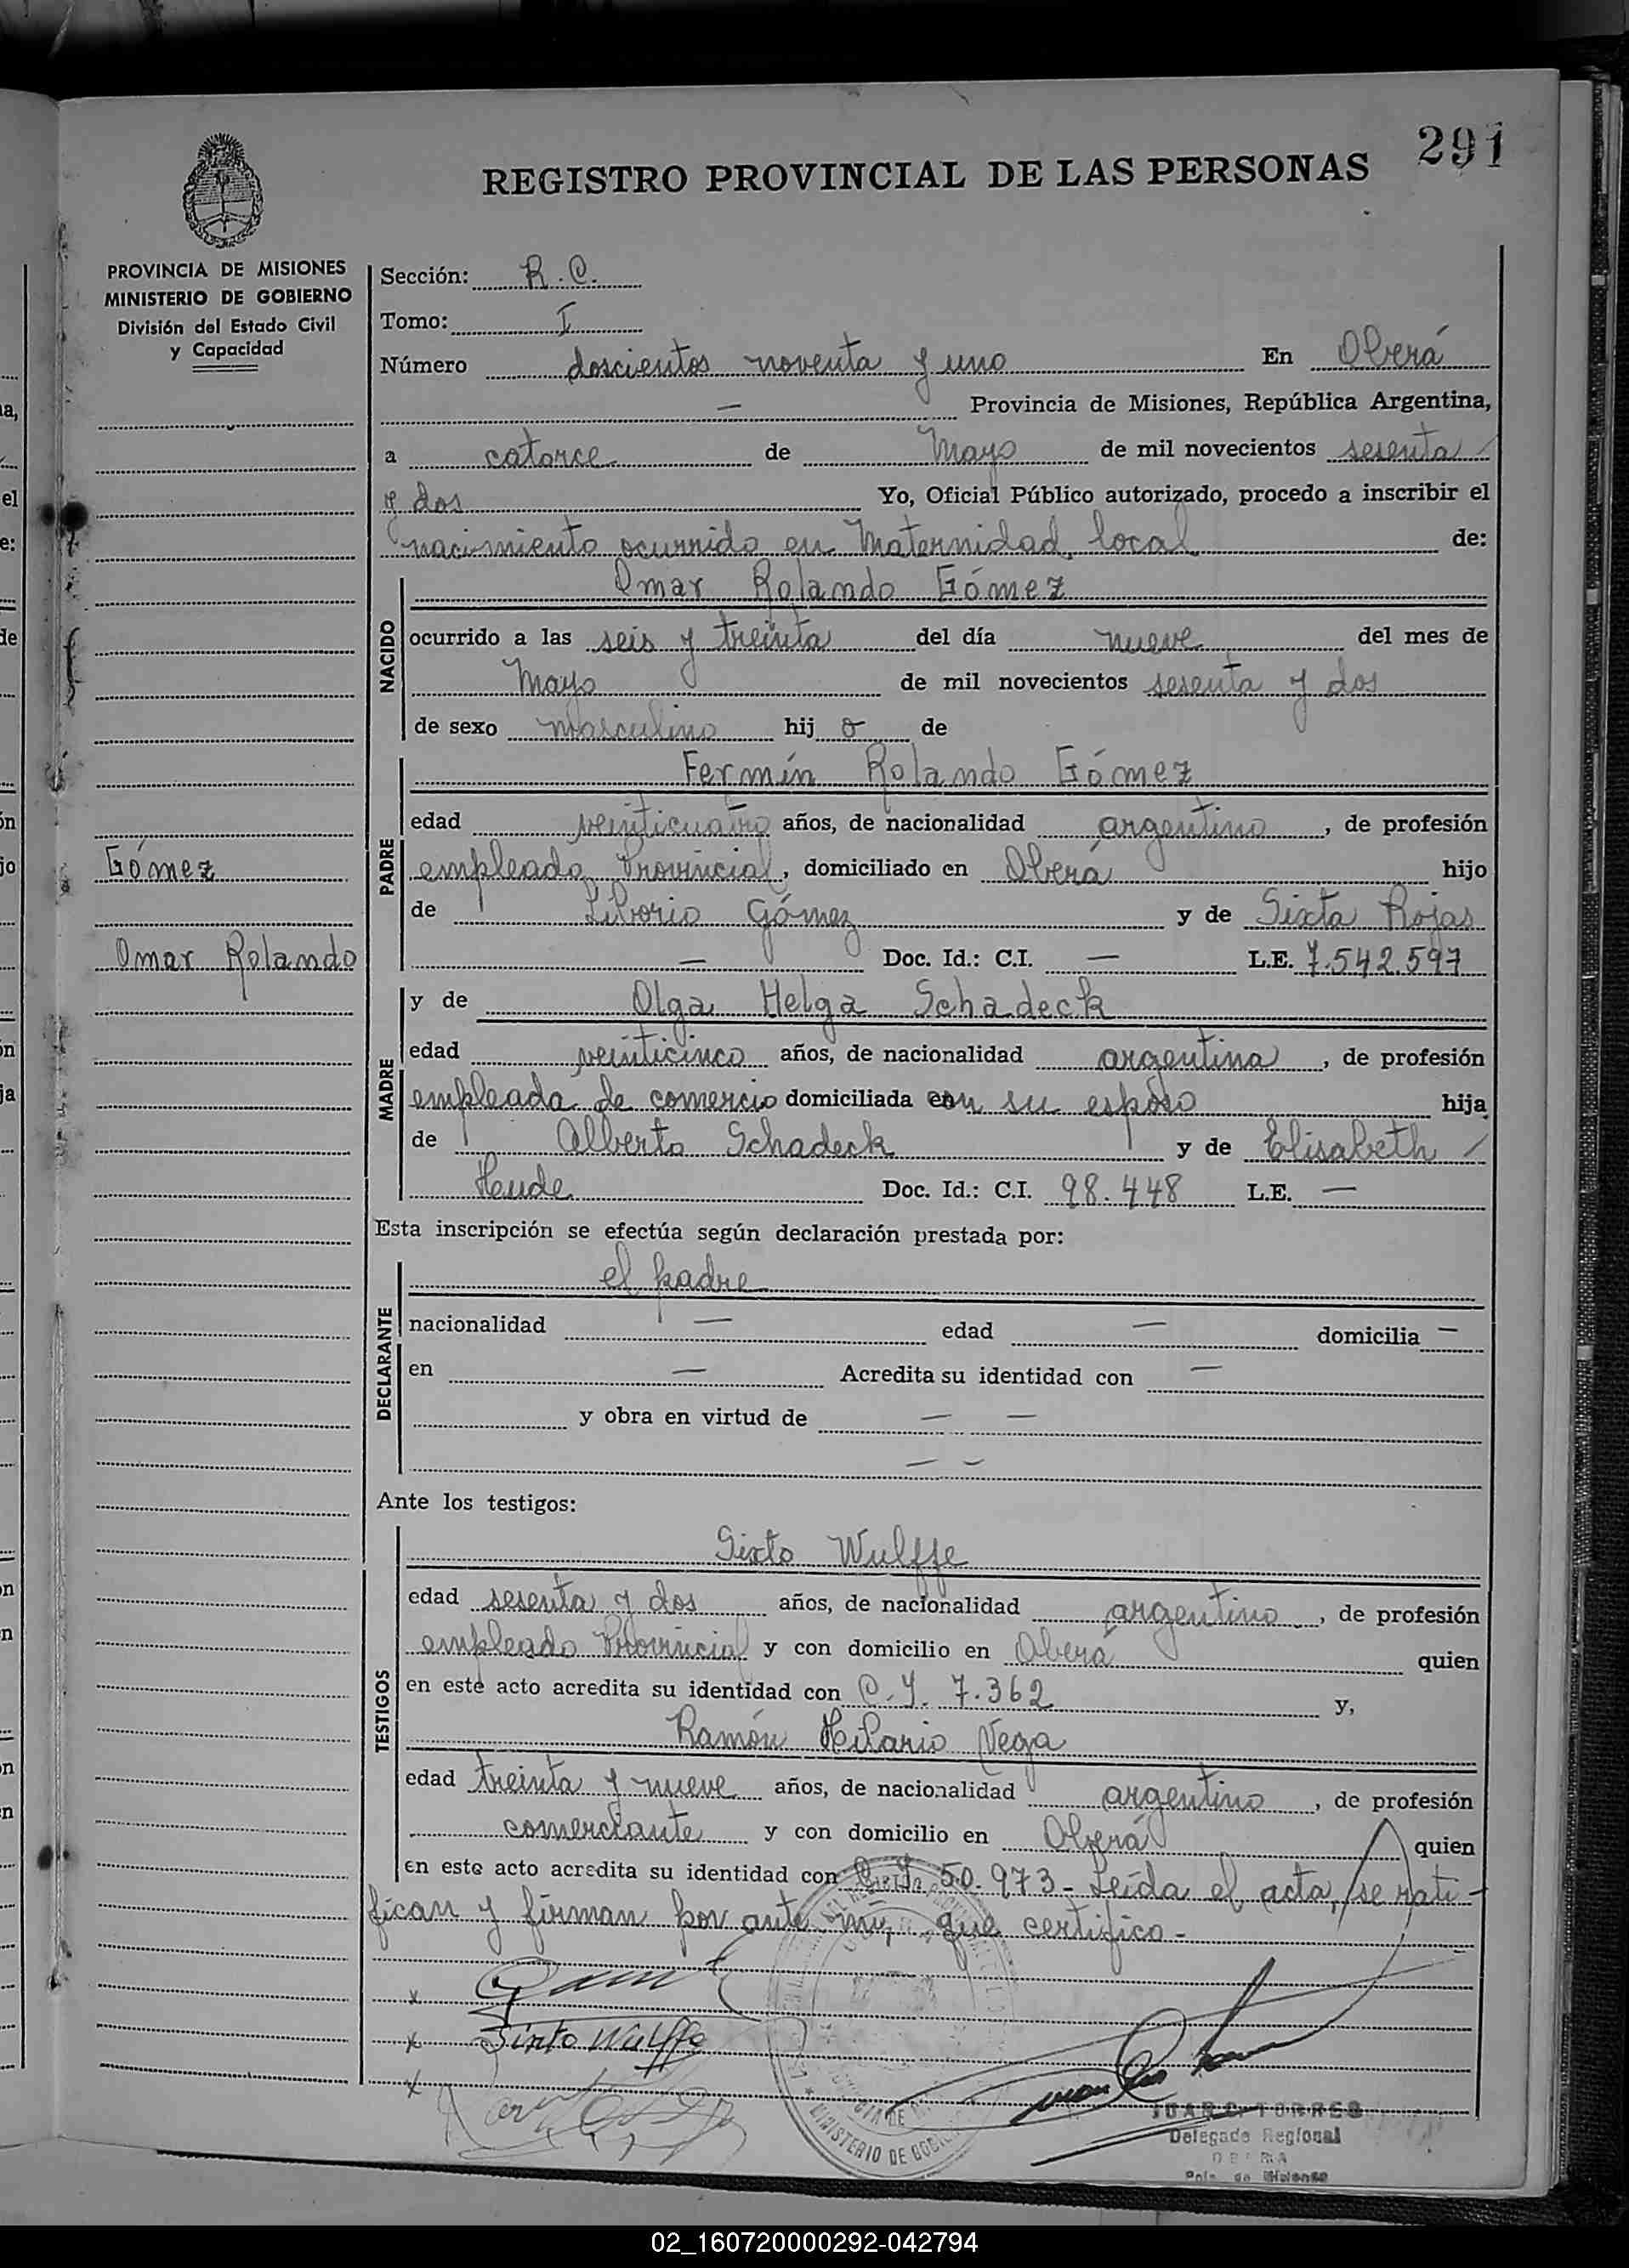 291
REGISTRO PROVINCIAL DE LAS PERSONAS
PROVINCIA DE MISIONES
MINISTERIO DE GOBIERNO
División del Estado Civil
y Capacidad
Gómez
Omar Rolando
Sección: R.C.
Tomo: I
Número doscientos noventa y uno En Oberá
— Provincia de Misiones, República Argentina,
a catorce de Mayo de mil novecientos sesenta
y dos Yo, Oficial Público autorizado, procedo a inscribir el
nacimiento ocurrido en Maternidad local de:
NACIDO
Omar Rolando Gómez
ocurrido a las seis y treinta del día nueve del mes de
Mayo de mil novecientos sesenta y dos
de sexo masculino hij o de
PADRE
Fermín Rolando Gómez
edad veinticuatro años, de nacionalidad argentino, de profesión
empleado Provincial, domiciliado en Oberá hijo
de Liborio Gómez y de Sixta Rojas
— Doc. Id.: C.I. — L.E. 7.542.597
MADRE
y de Olga Helga Schadeck
edad veinticinco años, de nacionalidad argentina, de profesión
empleada de comercio domiciliada con su esposo hija
de Alberto Schadeck y de Elisabeth
Hude Doc. Id.: C.I. 98.448 L.E. —
Esta inscripción se efectúa según declaración prestada por:
DECLARANTE
el padre
nacionalidad — edad — domicilia —
en — Acredita su identidad con —
y obra en virtud de — —
— —
Ante los testigos:
TESTIGOS
Sixto Wulffe
edad sesenta y dos años, de nacionalidad argentino, de profesión
empleado Provincial y con domicilio en Oberá quien
en este acto acredita su identidad con C.I. 7.362 y,
Ramón Hilario Vega
edad treinta y nueve años, de nacionalidad argentino, de profesión
comerciante y con domicilio en Oberá quien
en este acto acredita su identidad con C.I. 50.973- Leída el acta, se rati-
fican y firman por ante mí, que certifico.-
x
x Sixto Wulffe
x
MINISTERIO DE GOBIE
JUAN C. TORRES
Delegado Regional
OBERA
Pcia. de Misiones
02_160720000292-042794